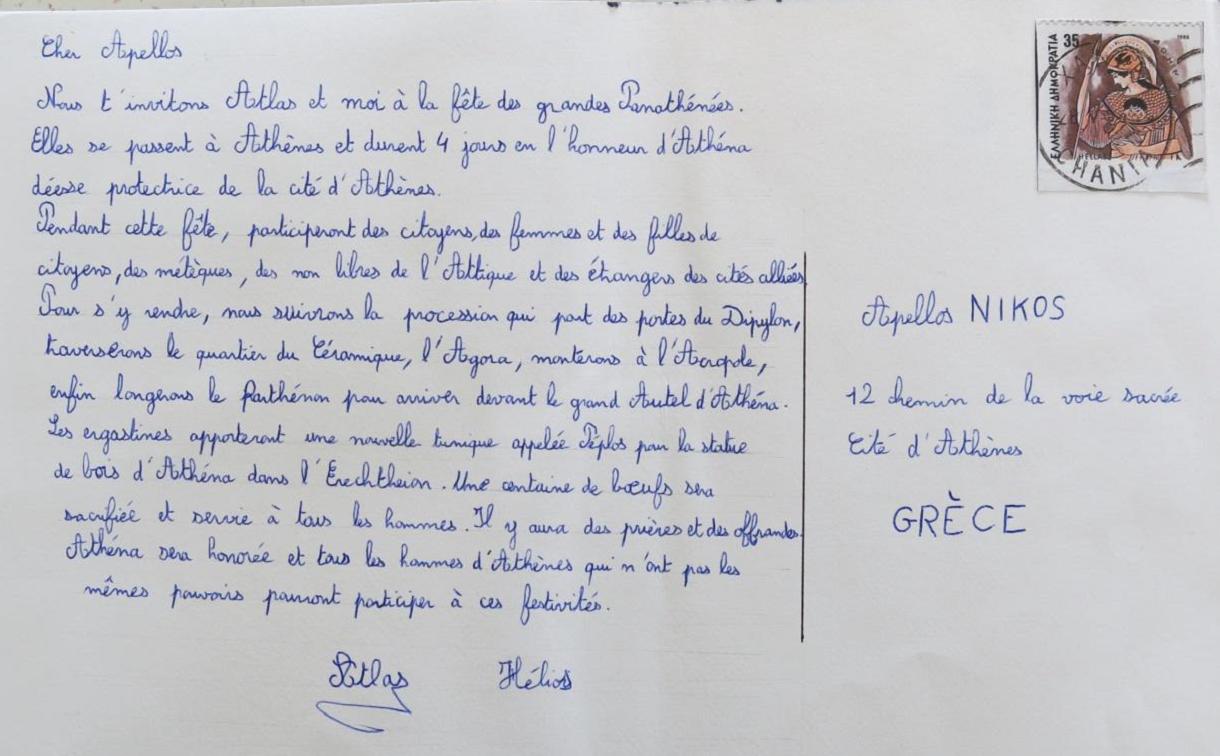 Cher Apellos
Nous t'invitons Atlas et moi à la fête des grandes Panathénées.
Elles se passent à Athènes et durent 4 jours en l'honneur d'Athéna
déesse protectrice de la cité d'Athènes.
Pendant cette fête, participeront des citoyens, des femmes et des filles de
citoyens, des métèques, des non libres de l'Attique et des étangers des cités alliées
Pour s'y rendre, nous suivrons la procession qui part des portes du Dipylon,
traverserons le quartier du Céramique, l'Agora, monterons à l'Acropole,
enfin longerons le Parthénon pour arriver devant le grand Autel d'Athéna.
Les ergastines apporteront une nouvelle tunique appelée Péplos pour la statue
de bois d'Athéna dans l'Érechthéion. Une centaine de bœufs sera
sacrifiée et servie à tous les hommes. Il y aura des prières et des offrandes.
Athéna sera honorée et tous les hommes d'Athènes qui n'ont pas les
mêmes pouvoirs pourront participer à ces festivités.
Atlas Hélios
35
ΕΛΛΗΝΙΚΗ ΔΗΜΟΚΡΑΤΙΑ
1986
HELLAS
CHANIA
Apellos NIKOS
12 chemin de la voie sacrée
Cité d'Athènes
GRÈCE